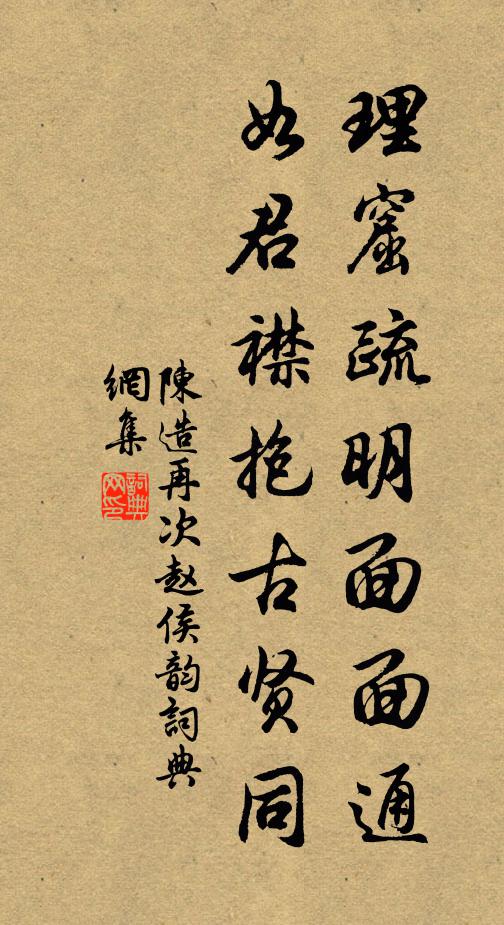 理窟疏明面面通
如君襟抱古贤同
陳造再次赵侯韵詞典
網集
詞典
网印